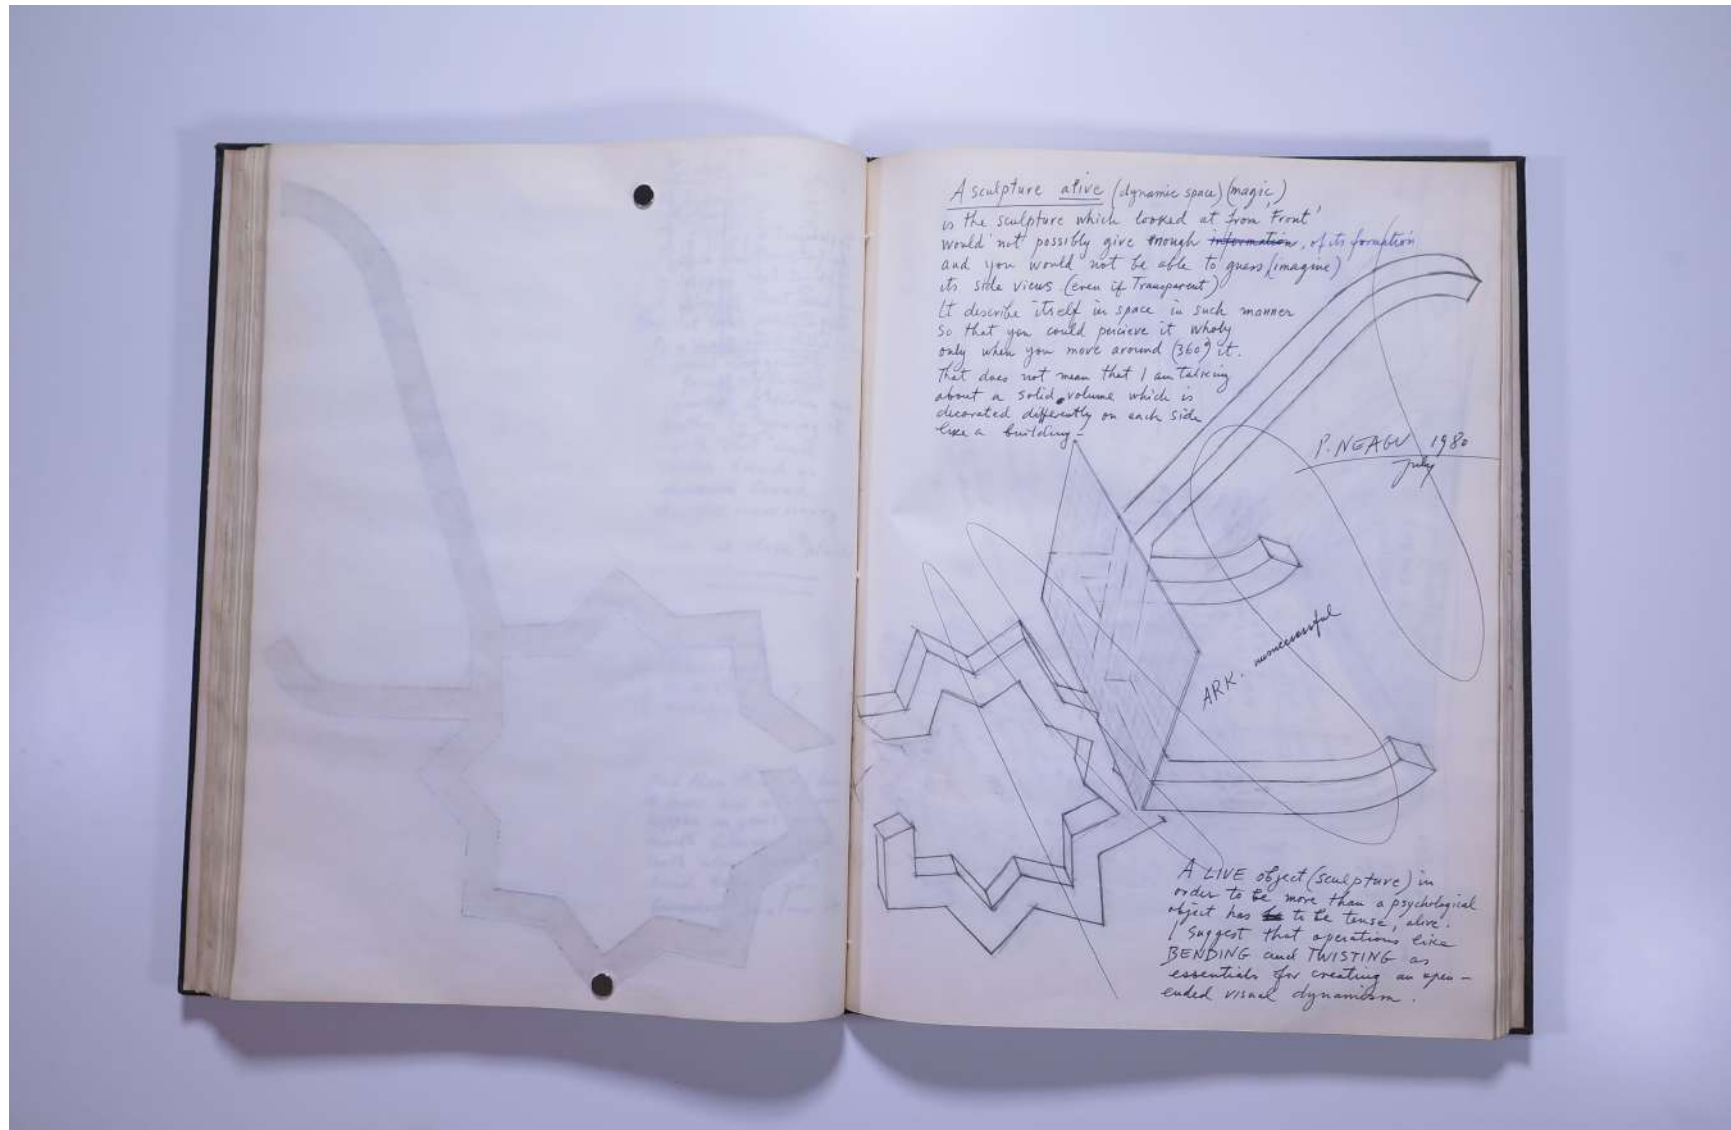 A sculpture alive (dynamic space) (magic,)
is the sculpture which looked at from 'Front'
would not possibly give enough information, of its formation
and you would not be able to guess (imagine)
its side views. (even if Transparent)
It describe itself in space in such manner
so that you could percieve it wholy
only when you move around (360°) it.
That does not mean that I am talking
about a solid volume which is
decorated differently on each side
like a building –
P. NEAGU 1980
July
ARK. unsuccessful
A LIVE object (sculpture) in
order to be more than a psychological
object has to be tense, alive.
I suggest that operations like
BENDING and TWISTING as
essentials for creating an open-
ended visual dynamism.